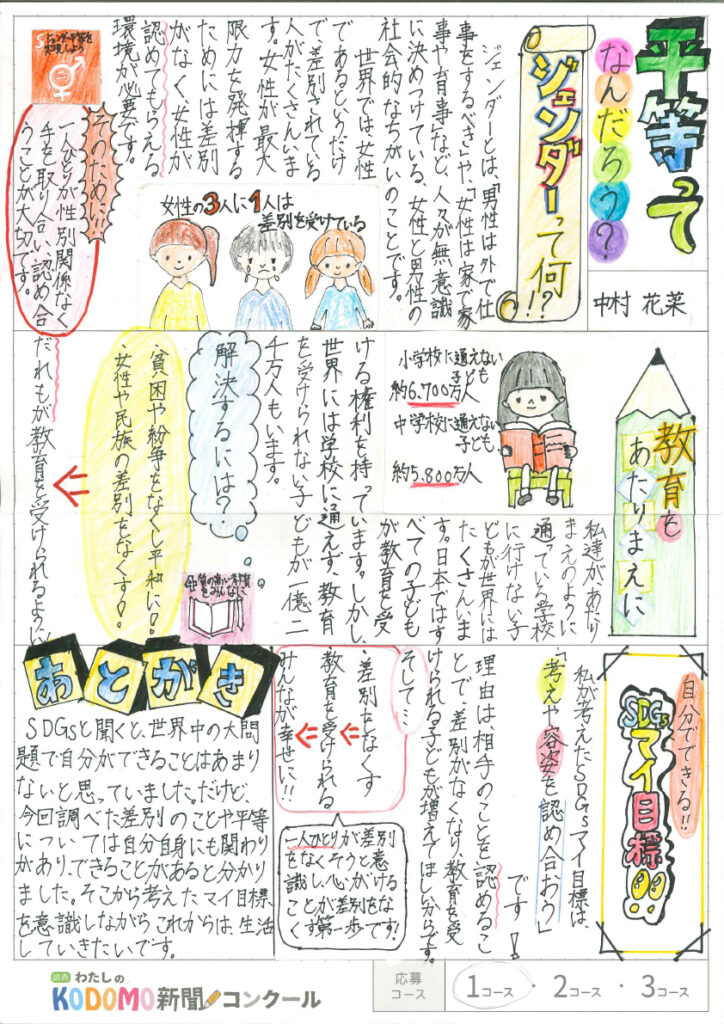 平等って
なんだろう?
中村 花菜
ジェンダーって何!?
ジェンダーとは、「男性は外で仕
事をするべき」や、「女性は家で家
事や育事」など、人々が無意識
に決めつけている、女性と男性の
社会的なちがいのことです。
世界では、女性
であるというだけ
で、差別されている
人がたくさんいま
す。女性が最大
限力を発揮する
ためには差別
がなく、女性が
認めてもらえる
環境が必要です。
女性の3人に1人は
差別を受けている
5 ジェンダー平等を
実現しよう
そのために!!
一人ひとりが性別関係なく
手を取り合い、認め合
うことが大切です。
教育を
あたりまえに
私達があたり
まえのように
通っている学校
に行けない子
どもが世界には
たくさんいま
す。日本ではす
べての子ども
が教育を受
ける権利を持っています。しかし、
世界には学校に通えず、教育
を受けられない子どもが一億二
千万人もいます。
小学校に通えない
子ども
約6.700万人
中学校に通えない
子ども
約5.800万人
解決するには?
・貧困や紛争をなくし平和に!!
・女性や民族の差別をなくす!!
だれもが教育を受けられるように
4 質の高い教育
をみんなに
自分でできる!!
SDGsマイ目標!!
私が考えたSDGsマイ目標は、
「考えや容姿を認め合おう」
です!
理由は相手のことを認めるこ
とで、差別がなくなり、教育を受
けられる子どもが増えてほしいからです。
そして…
・差別をなくす
教育を受けられる
みんなが幸せに!!
一人ひとりが差別
をなくそうと意
識し、心がける
ことが差別をな
くす第一歩です!
あとがき
SDGsと聞くと、世界中の大問
題で自分ができることはあまり
ないと思っていました。だけど、
今回調べた差別のことや平等
については自分自身にも関わり
があり、できることがあると分かり
ました。そこから考えたマイ目標
を意識しながらこれからは、生活
していきたいです。
読売 わたしの
KODOMO新聞コンクール
応募
コース
1コース・2コース・3コース